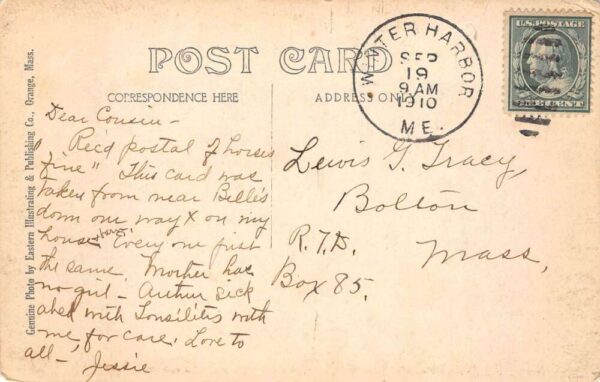 POST CARD
CORRESPONDENCE HERE
ADDRESS ONLY
WINTER HARBOR
SEP
19
9 AM
1910
ME.
U.S. POSTAGE
ONE CENT
Genuine Photo by Eastern Illustrating & Publishing Co., Orange, Mass.
Dear Cousin -
Rec'd postal of horses
"fine" This card was
taken from near Belle's
down our way X on my
house
Every one just
the same. Mother has
no girl - Arthur sick
abed with Tonsilitis with
me, for care. Love to
all - Jessie
Lewis G. Tracy,
Bolton
R.F.D. Mass,
Box 85.